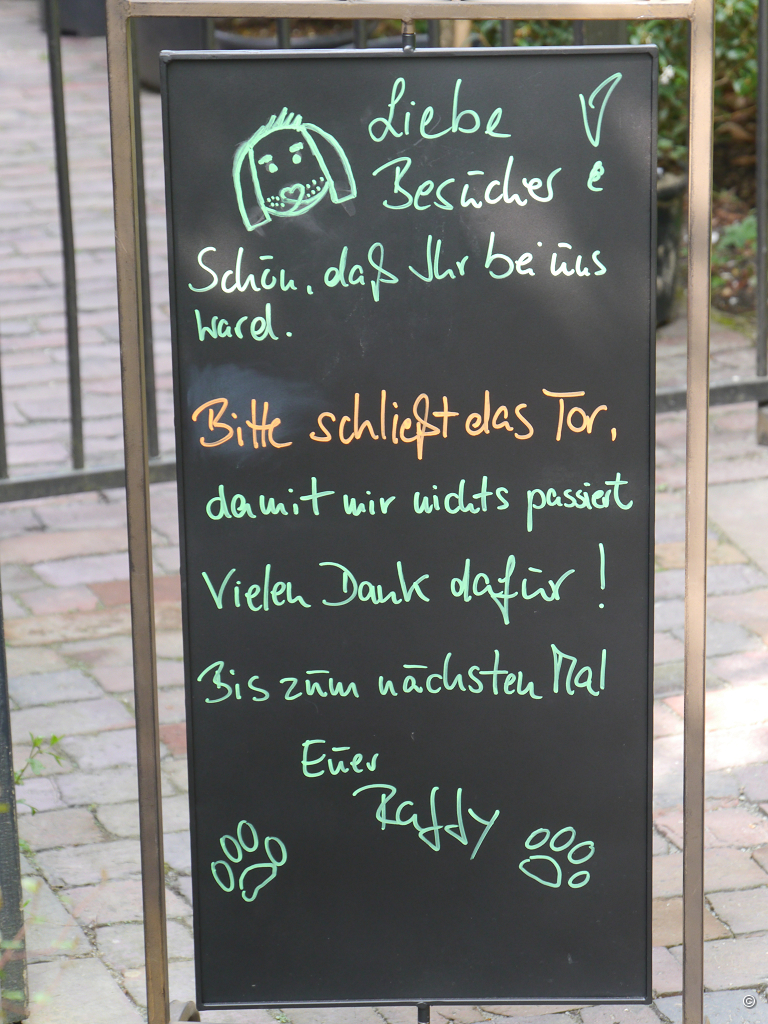 Liebe
Besucher !
Schön, daß Ihr bei uns
ward.
Bitte schließt das Tor,
damit mir nichts passiert
Vielen Dank dafür !
Bis zum nächsten Mal
Euer
Raffy
©